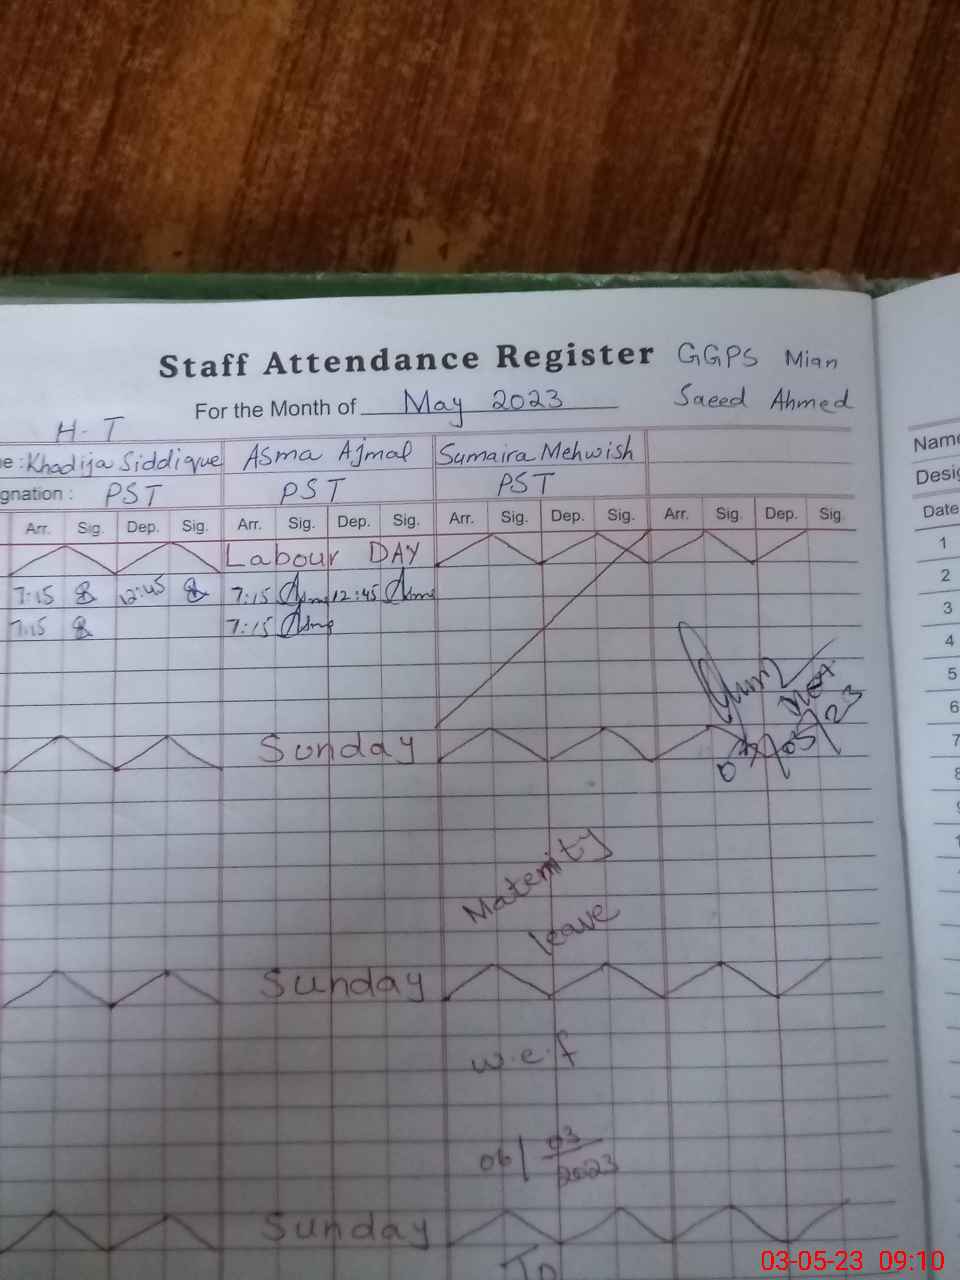 Staff Attendance Register GGPS Mian
For the Month of May 2023 Saeed Ahmed
H.T
e : Khadija Siddique Asma Ajmal Sumaira Mehwish
gnation : PST PST PST
Arr. Sig. Dep. Sig. Arr. Sig. Dep. Sig. Arr. Sig. Dep. Sig. Arr. Sig. Dep. Sig.
Labour DAY
7:15 12:45 7:15 Asma 12:45 Asma
7:15 7:15 Asma
03/05/23
Sunday
Maternity
leave
Sunday
w.e.f
06/03/2023
Sunday
To
Name
Desig
Date
1
2
3
4
5
6
7
8
03-05-23 09:10